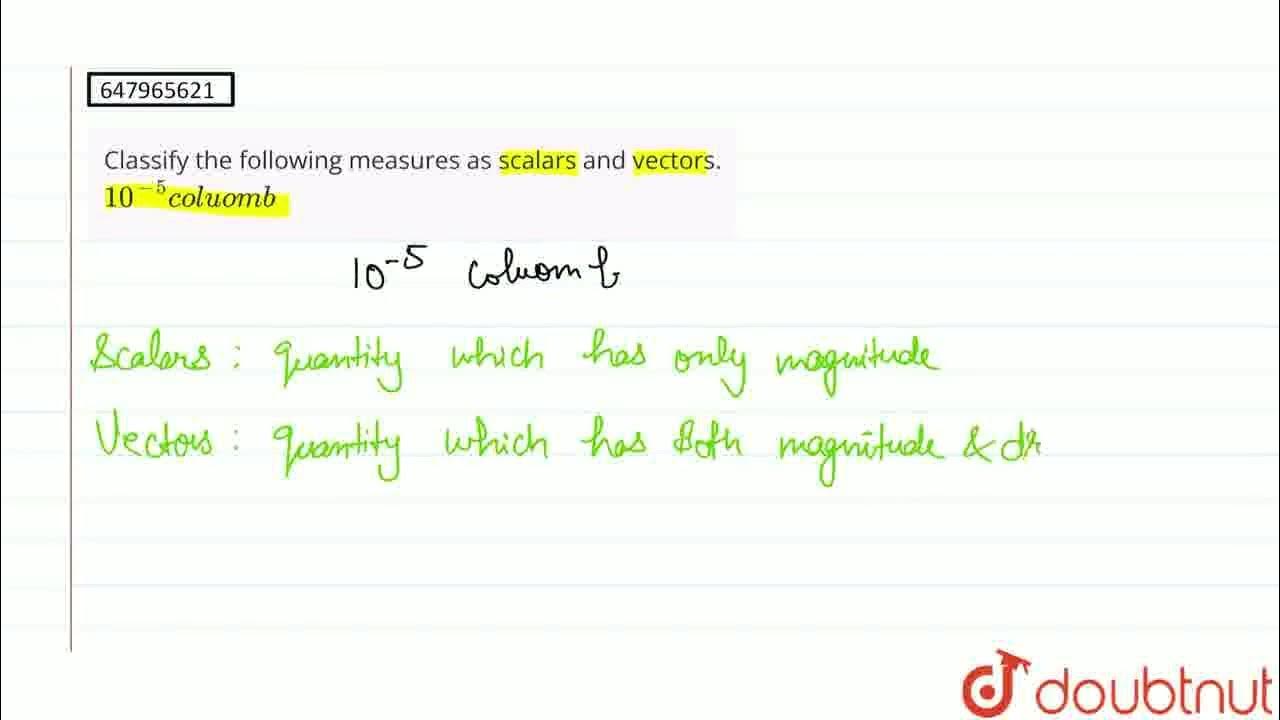 647965621
Classify the following measures as scalars and vectors.
10⁻⁵coluomb
10⁻⁵ coluomb
Scalars : quantity which has only magnitude
Vectors : quantity which has Both magnitude & di
doubtnut